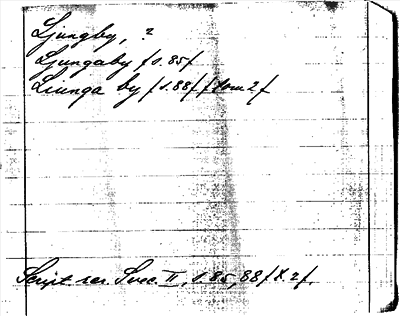 Ljungby, ?
Ljungaby f 1.85f
Liunga by f 1.88f f
Script. rer. Svec. II, 1.85, 88f f.